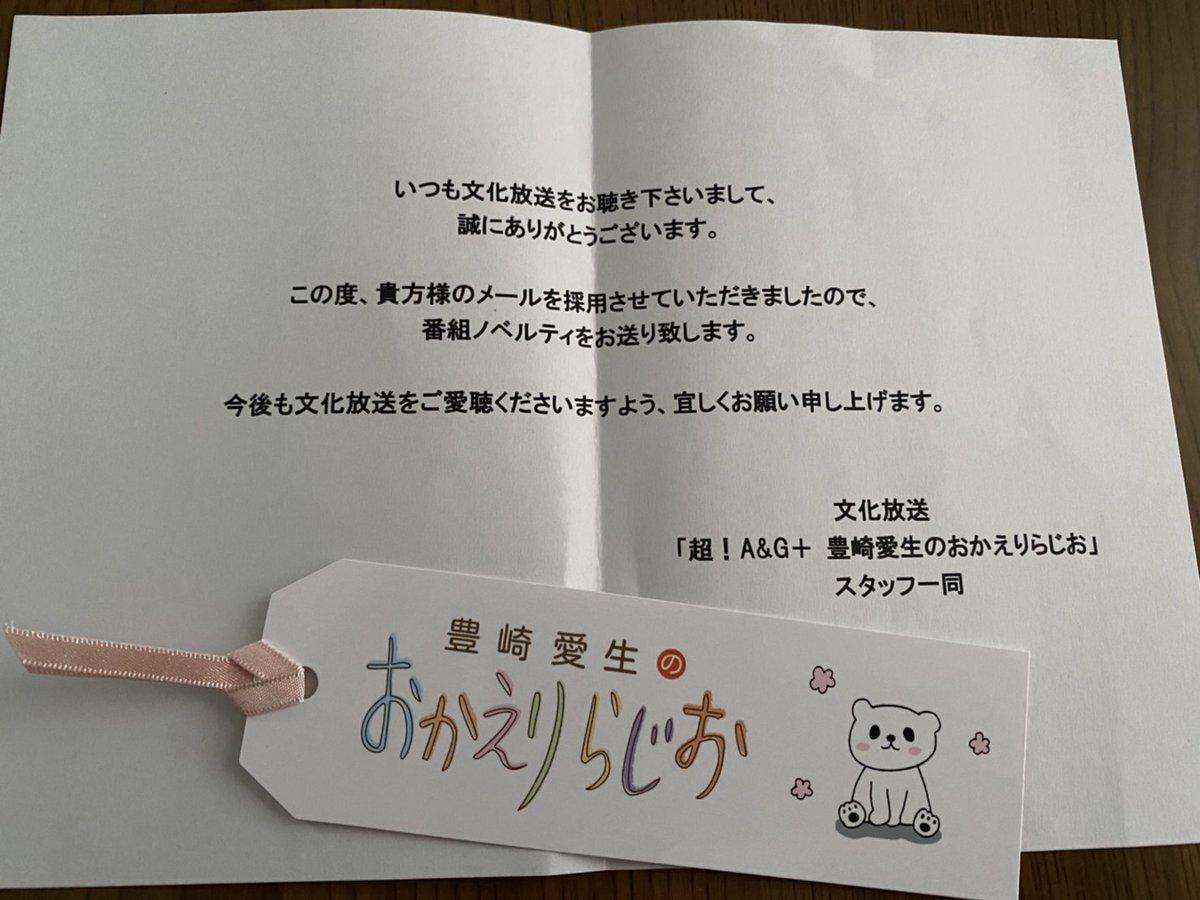 いつも文化放送をお聴き下さいまして、
誠にありがとうございます。
この度、貴方様のメールを採用させていただきましたので、
番組ノベルティをお送り致します。
今後も文化放送をご愛聴くださいますよう、宜しくお願い申し上げます。
文化放送
「超！A&G＋ 豊崎愛生のおかえりらじお」
スタッフ一同
豊崎愛生の
おかえりらじお